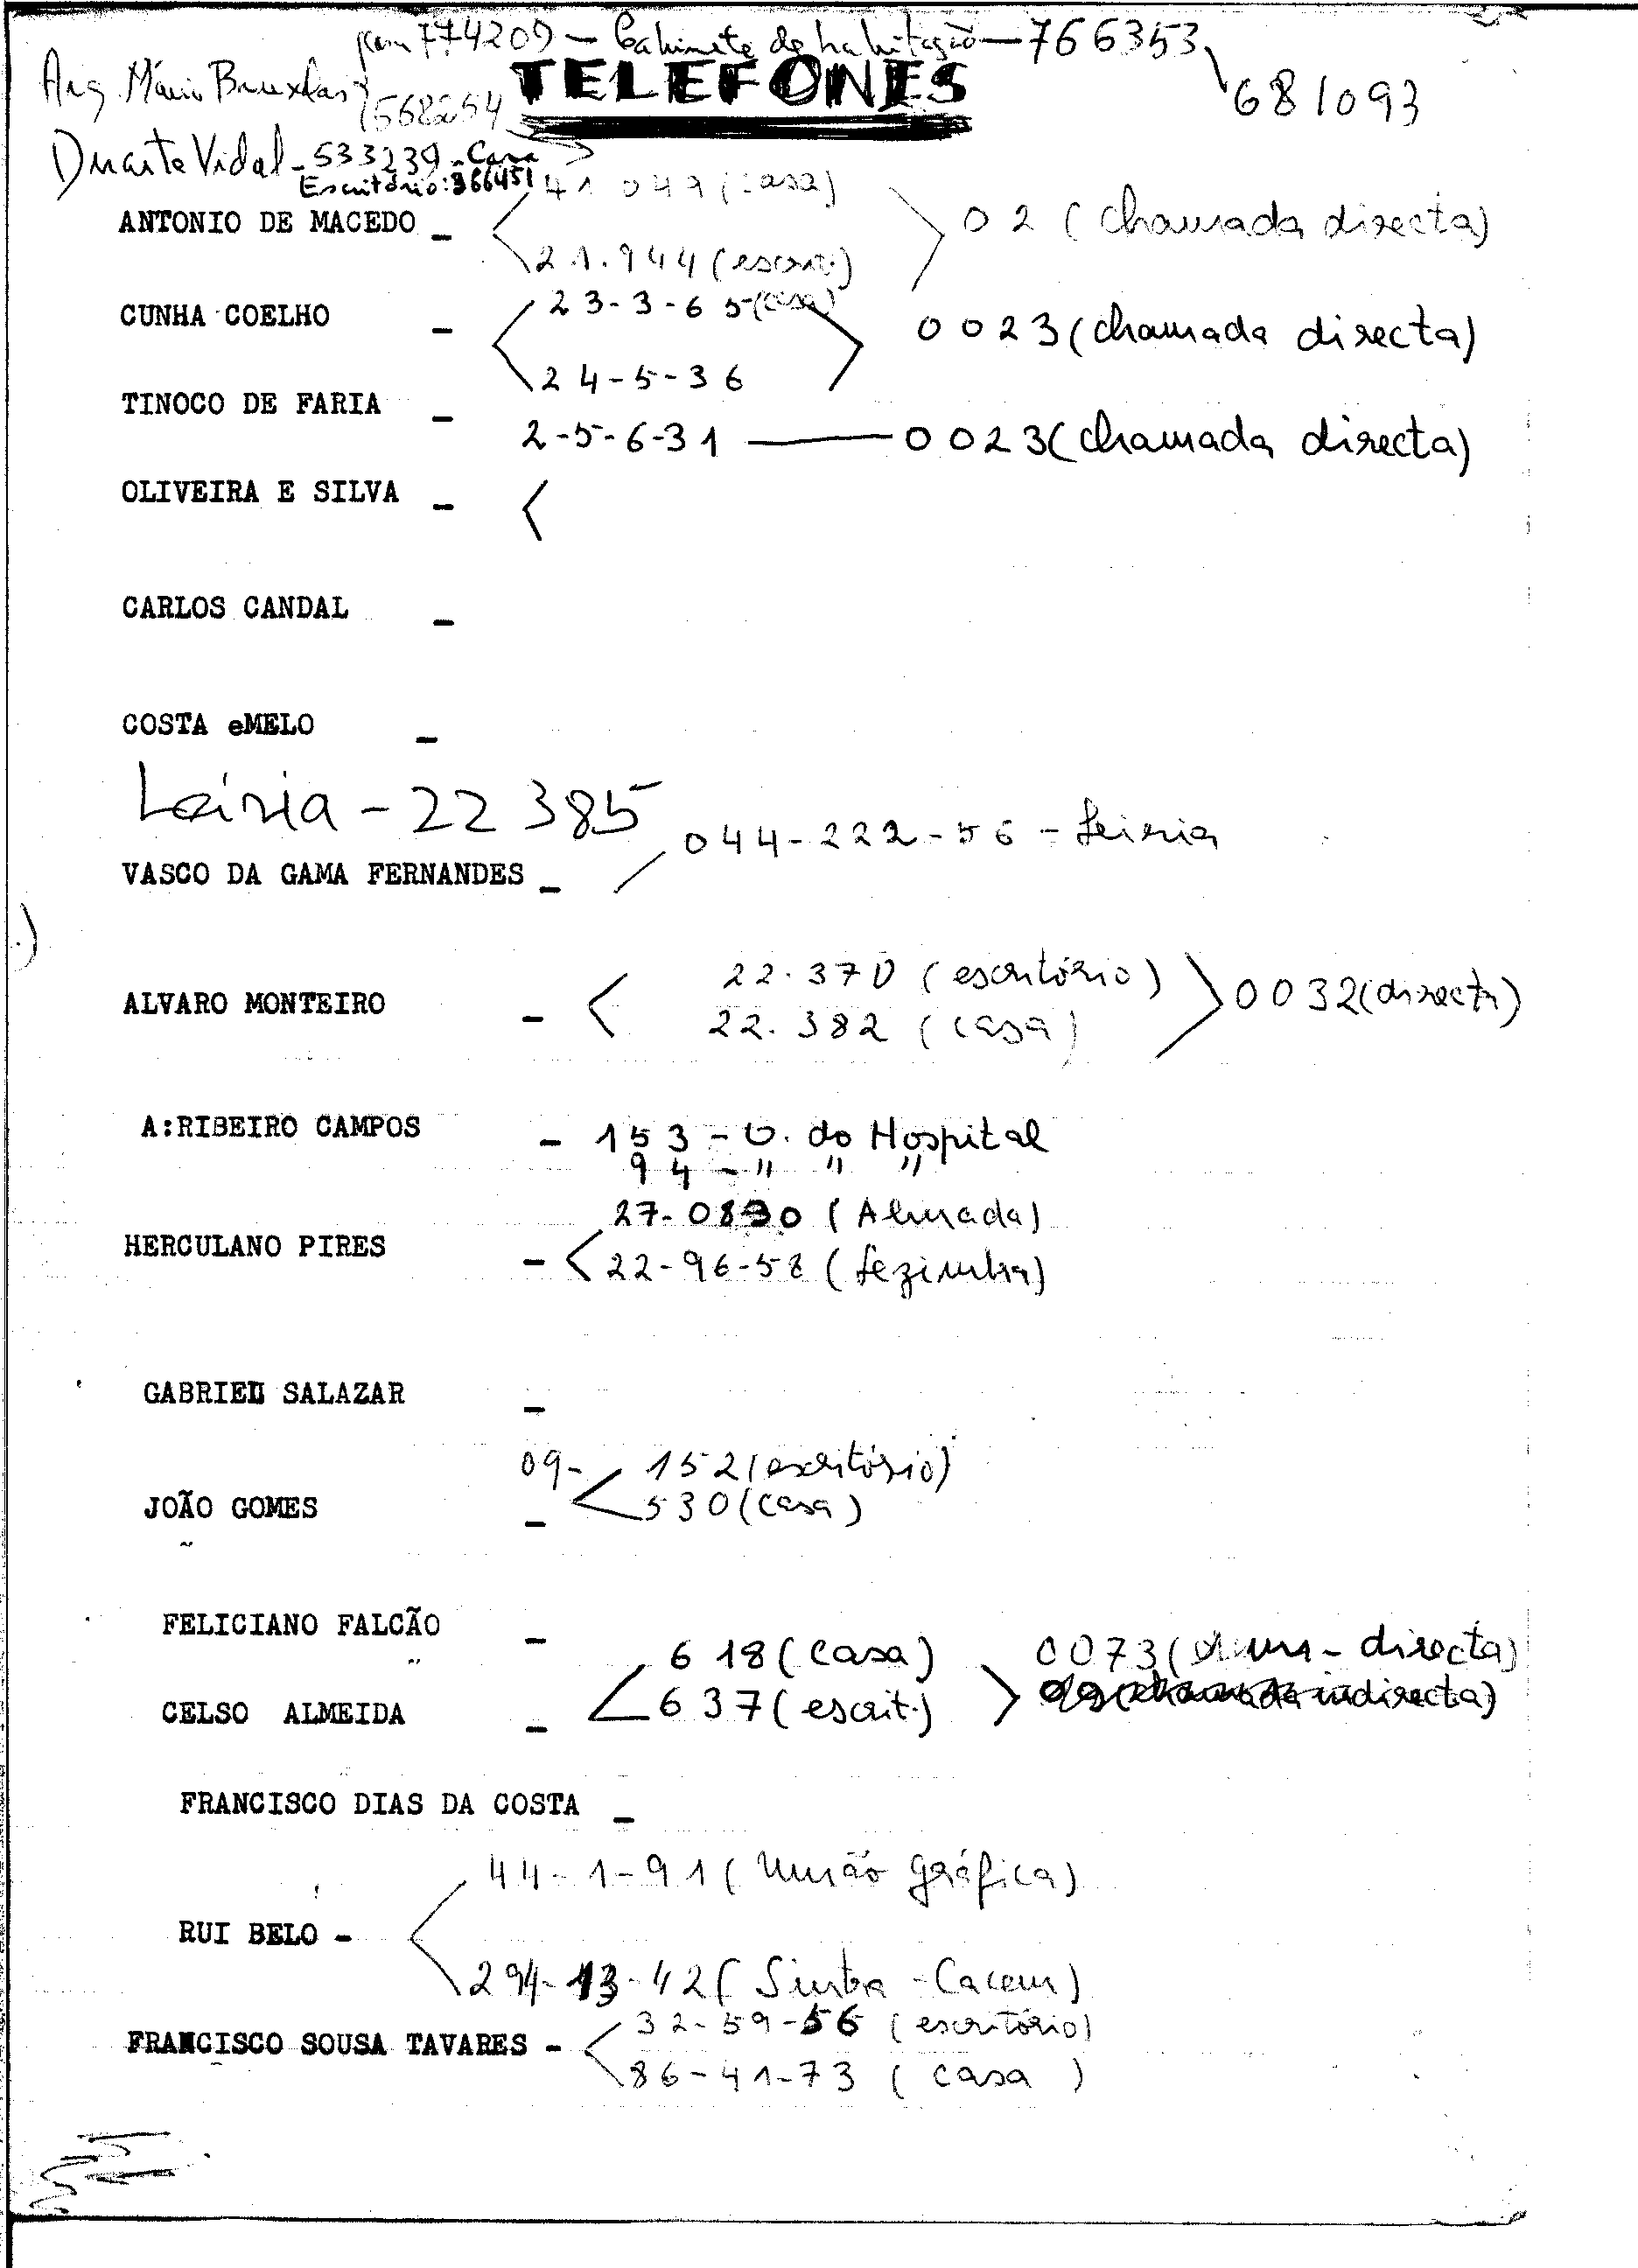 774209 - Gabinete de habitação - 766353
681093
TELEFONES
Arq. Mário Bruxelas
568254
Duarte Vidal - 533239 - Casa
Escritório: 366451
41 049 (casa)
ANTONIO DE MACEDO - 02 (chamada directa)
21.944 (escrit.)
23-3-65 (casa)
CUNHA COELHO - 0023 (chamada directa)
24-5-36
TINOCO DE FARIA -
2-5-6-31 — 0023 (chamada directa)
OLIVEIRA E SILVA -
CARLOS CANDAL -
COSTA eMELO -
Leiria - 22 385
044-222-56 - Leiria
VASCO DA GAMA FERNANDES -
22.370 (escritório)
ALVARO MONTEIRO - 0032 (directa)
22.382 (casa)
A:RIBEIRO CAMPOS - 153 - O. do Hospital
94 - " " "
27-0890 (Almada)
HERCULANO PIRES -
22-96-58 (Sezimbra)
GABRIEL SALAZAR -
09- 152 (escritório)
JOÃO GOMES - 530 (casa)
FELICIANO FALCÃO -
618 (casa) 0073 (cham - directa)
CELSO ALMEIDA - 637 (escrit.)
FRANCISCO DIAS DA COSTA -
44-1-91 (União gráfica)
RUI BELO -
294-13-42 (Sintra - Cacem)
32-59-56 (escritório)
FRANCISCO SOUSA TAVARES -
86-41-73 (casa)